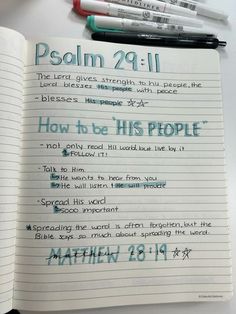 Psalm 29:11
The Lord gives strength to his people, the
Lord blesses His people with peace
- blesses His people ☆☆
How to be "HIS PEOPLE"
- not only read His world but live by it
FOLLOW IT!
- Talk to Him
He wants to hear from you
He will listen & He will provide
- Spread His word
Sooo important
Spreading the word is often forgotten, but the
Bible says so much about spreading the word.
MATTHEW 28:19
Matthew 28:19 ☆☆